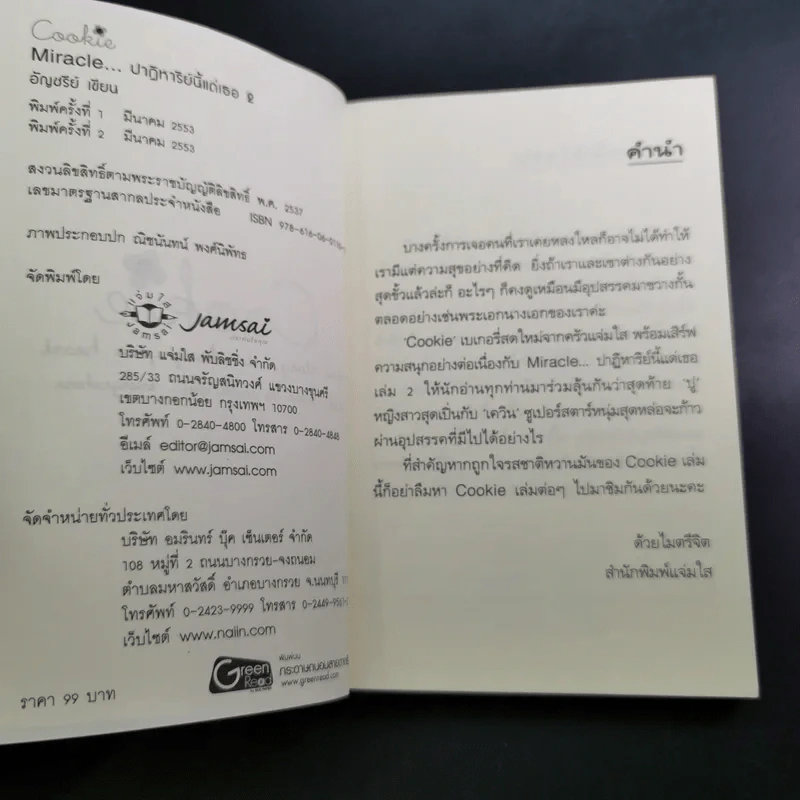 Cookie
Miracle... ปาฏิหาริย์นี้แด่เธอ 2
อัญชรีย์ เขียน
พิมพ์ครั้งที่ 1 มีนาคม 2553
พิมพ์ครั้งที่ 2 มีนาคม 2553
สงวนลิขสิทธิ์ตามพระราชบัญญัติลิขสิทธิ์ พ.ศ. 2537
เลขมาตรฐานสากลประจำหนังสือ ISBN 978-616-06-
ภาพประกอบปก ณิชนันทน์ พงศ์นิพัทธ
จัดพิมพ์โดย
แจ่มใส
Jamsai
Jamsai
บริษัท แจ่มใส พับลิชชิ่ง จำกัด
285/33 ถนนจรัญสนิทวงศ์ แขวงบางขุนศรี
เขตบางกอกน้อย กรุงเทพฯ 10700
โทรศัพท์ 0-2840-4800 โทรสาร 0-2840-4848
อีเมล์ editor@jamsai.com
เว็บไซต์ www.jamsai.com
จัดจำหน่ายทั่วประเทศโดย
บริษัท อมรินทร์ บุ๊ค เซ็นเตอร์ จำกัด
108 หมู่ที่ 2 ถนนบางกรวย-จงถนอม
ตำบลมหาสวัสดิ์ อำเภอบางกรวย จ.นนทบุรี
โทรศัพท์ 0-2423-9999 โทรสาร 0-2449-9561-
เว็บไซต์ www.naiin.com
Green Read
พิมพ์บน
กระดาษถนอมสายตา
www.greenread.com
ราคา 99 บาท
คำนำ
บางครั้งการเจอคนที่เราเคยหลงใหลก็อาจไม่ได้ทำให้
เรามีแต่ความสุขอย่างที่คิด ยิ่งถ้าเราและเขาต่างกันอย่าง
สุดขั้วแล้วล่ะก็ อะไรๆ ก็คงดูเหมือนมีอุปสรรคมาขวางกั้น
ตลอดอย่างเช่นพระเอกนางเอกของเราค่ะ
'Cookie' เบเกอรี่สดใหม่จากครัวแจ่มใส พร้อมเสิร์ฟ
ความสนุกอย่างต่อเนื่องกับ Miracle... ปาฏิหาริย์นี้แด่เธอ
เล่ม 2 ให้นักอ่านทุกท่านมาร่วมลุ้นกันว่าสุดท้าย 'ปู'
หญิงสาวสุดเปิ่นกับ 'เควิน' ซูเปอร์สตาร์หนุ่มสุดหล่อจะก้าว
ผ่านอุปสรรคที่มีไปได้อย่างไร
ที่สำคัญหากถูกใจรสชาติหวานมันของ Cookie เล่ม
นี้ก็อย่าลืมหา Cookie เล่มต่อๆ ไปมาชิมกันด้วยนะคะ
ด้วยไมตรีจิต
สำนักพิมพ์แจ่มใส